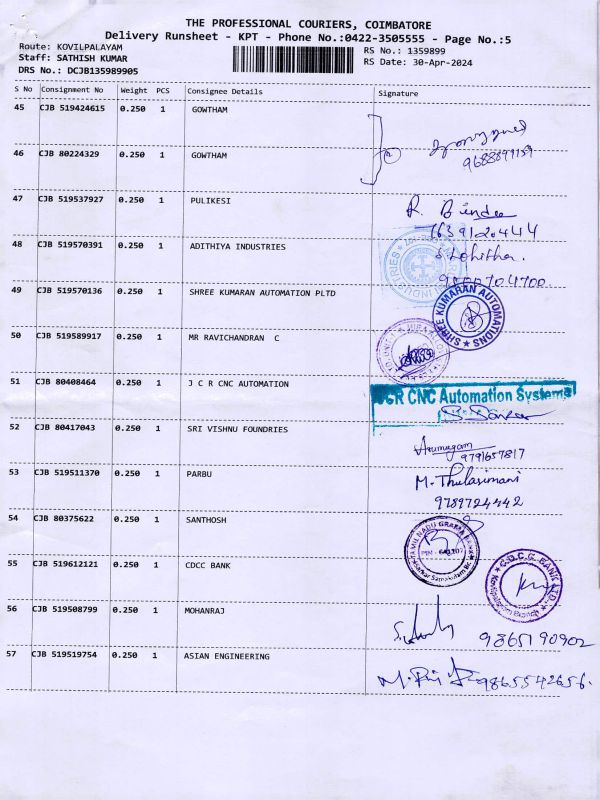 THE PROFESSIONAL COURIERS, COIMBATORE
Delivery Runsheet - KPT - Phone No.:0422-3505555 - Page No.:5
Route: KOVILPALAYAM
RS No.: 1359899
Staff: SATHISH KUMAR
RS Date: 30-Apr-2024
DRS No.: DCJB135989905
S No Consignment No Weight PCS Consignee Details Signature
45 CJB 519424615 0.250 1 GOWTHAM
46 CJB 80224329 0.250 1 GOWTHAM
47 CJB 519537927 0.250 1 PULIKESI
R.
48 CJB 519570391 0.250 1 ADITHIYA INDUSTRIES
49 CJB 519570136 0.250 1 SHREE KUMARAN AUTOMATION PLTD
SHREE KUMARAN AUTOMATIONS
50 CJB 519589917 0.250 1 MR RAVICHANDRAN C
51 CJB 80408464 0.250 1 J C R CNC AUTOMATION
CNC Automation Systems
52 CJB 80417043 0.250 1 SRI VISHNU FOUNDRIES
Arumugam
9791657817
53 CJB 519511370 0.250 1 PARBU
M. Thulasimani
9789724442
54 CJB 80375622 0.250 1 SANTHOSH
TAMIL NADU GRAMA BANK
55 CJB 519612121 0.250 1 CDCC BANK
C.D.C.C. BANK LTD.
56 CJB 519508799 0.250 1 MOHANRAJ
9865190902
57 CJB 519519754 0.250 1 ASIAN ENGINEERING
9865542656.